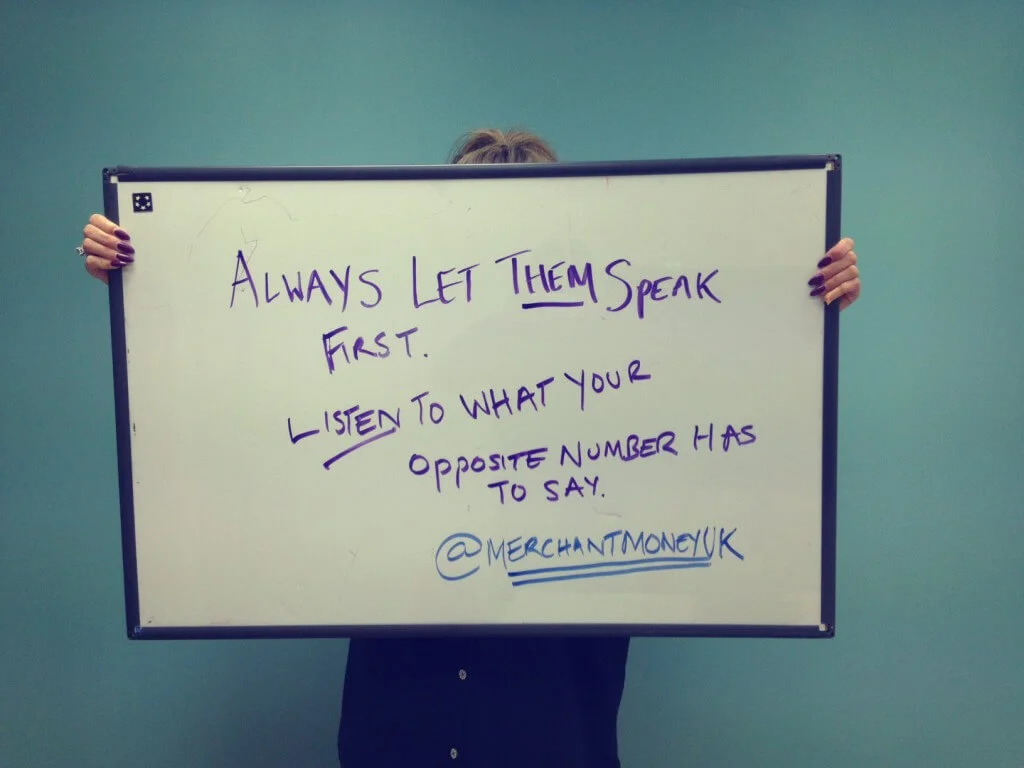 ALWAYS LET THEM SPEAK
FIRST.
LISTEN TO WHAT YOUR
OPPOSITE NUMBER HAS
TO SAY.
@MERCHANTMONEYUK